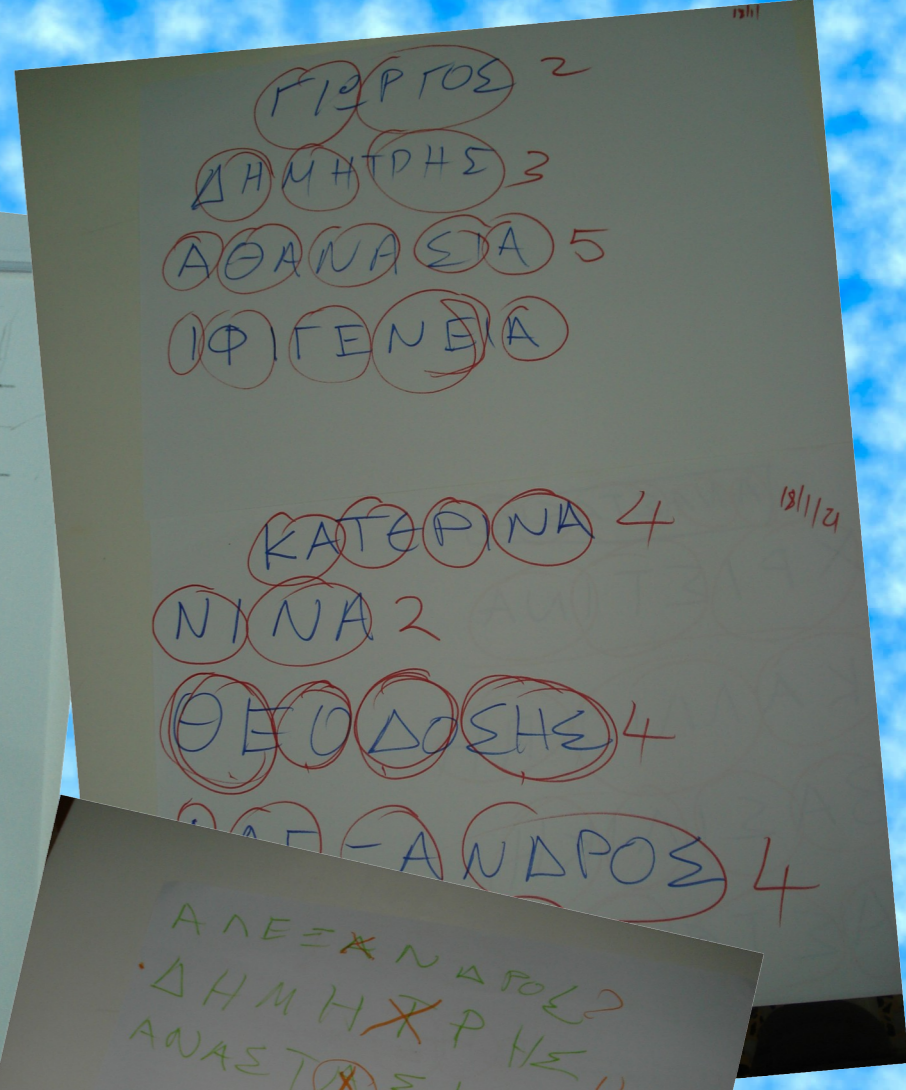 18/1
ΓΙΩΡΓΟΣ 2
ΔΗΜΗΤΡΗΣ 3
ΑΘΑΝΑΣΙΑ 5
ΙΦΙΓΕΝΕΙΑ
18/1/21
ΚΑΤΕΡΙΝΑ 4
ΝΙΝΑ 2
ΘΕΟΔΟΣΗΣ 4
ΑΛΕΞΑΝΔΡΟΣ 4
ΑΛΕΞΑΝΔΡΟΣ 2
ΔΗΜΗΤΡΗΣ